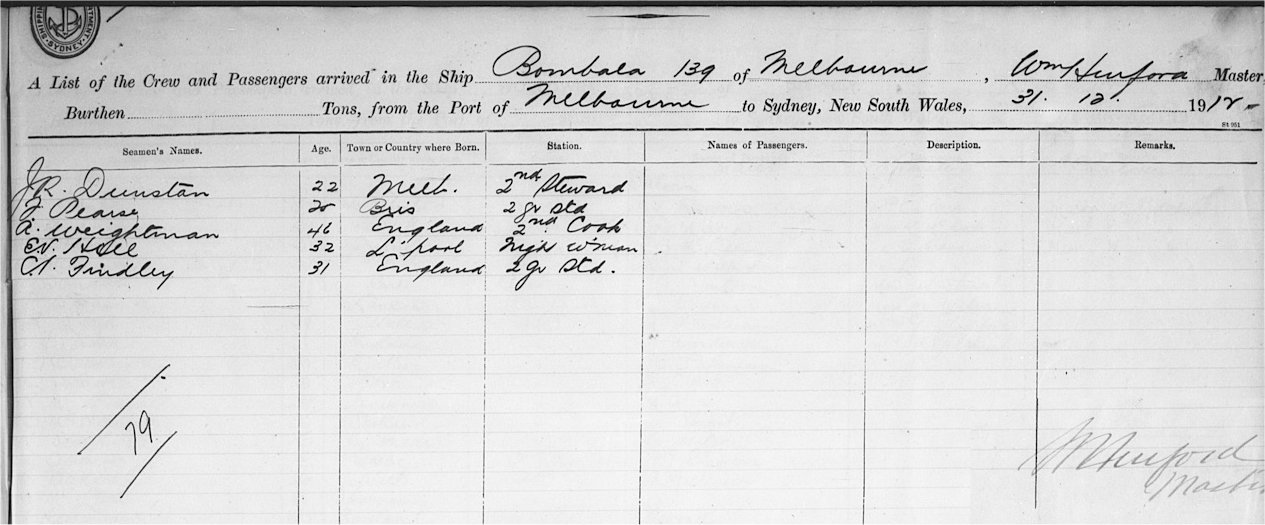 SHIPPING DEPARTMENT. SYDNEY.
A List of the Crew and Passengers arrived in the Ship Bombala 139 of Melbourne, Wm Hurford Master,
Burthen Tons, from the Port of Melbourne to Sydney, New South Wales, 31. 12. 1912
St 951
Seamen's Names. Age. Town or Country where Born. Station. Names of Passengers. Description. Remarks.
J R. Dunstan 22 Melb. 2nd Steward
Pearse 20 Bris 2 gr Std
A. Weightman 46 England 2nd Cook
Hall 32 L'pool Nigh W'man
Findley 31 England 2 gr Std.
79
Hurford
Master